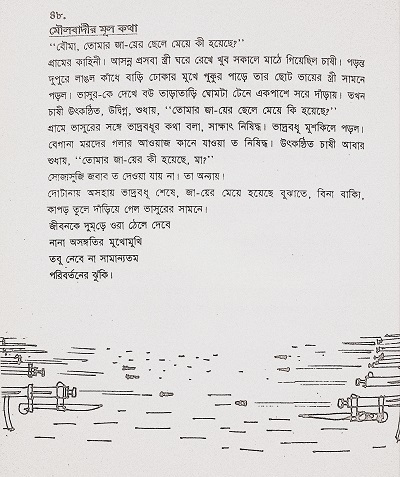 ৪৮.
মৌলবাদীর মূল কথা
“বৌমা, তোমার জা-য়ের ছেলে মেয়ে কী হয়েছে?”
গ্রামের কাহিনী। আসন্ন প্রসবা স্ত্রী ঘরে রেখে খুব সকালে মাঠে গিয়েছিল চাষী। পড়ন্ত
দুপুরে লাঙল কাঁধে বাড়ি ঢোকার মুখে পুকুর পাড়ে তার ছোট ভায়ের স্ত্রী সামনে
পড়ল। ভাসুর-কে দেখে বউ তাড়াতাড়ি ঘোমটা টেনে একপাশে সরে দাঁড়ায়। তখন
চাষী উৎকণ্ঠিত, উদ্বিগ্ন, শুধায়, “তোমার জা-য়ের ছেলে মেয়ে কি হয়েছে?”
গ্রামে ভাসুরের সঙ্গে ভাদ্রবধূর কথা বলা, সাক্ষাৎ নিষিদ্ধ। ভাদ্রবধূ মুশকিলে পড়ল।
বেগানা মরদের গলার আওয়াজ কানে যাওয়া ত নিষিদ্ধ। উৎকণ্ঠিত চাষী আবার
শুধায়, “তোমার জা-য়ের কী হয়েছে, মা?”
সোজাসুজি জবাব ত দেওয়া যায় না। তা অন্যায়।
দোটানায় অসহায় ভাদ্রবধূ শেষে, জা-য়ের মেয়ে হয়েছে বুঝাতে, বিনা বাক্যি,
কাপড় তুলে দাঁড়িয়ে গেল ভাসুরের সামনে।
জীবনকে দুমড়ে ওরা ঠেলে দেবে
নানা অসঙ্গতির মুখোমুখি
তবু নেবে না সামান্যতম
পরিবর্তনের ঝুঁকি।